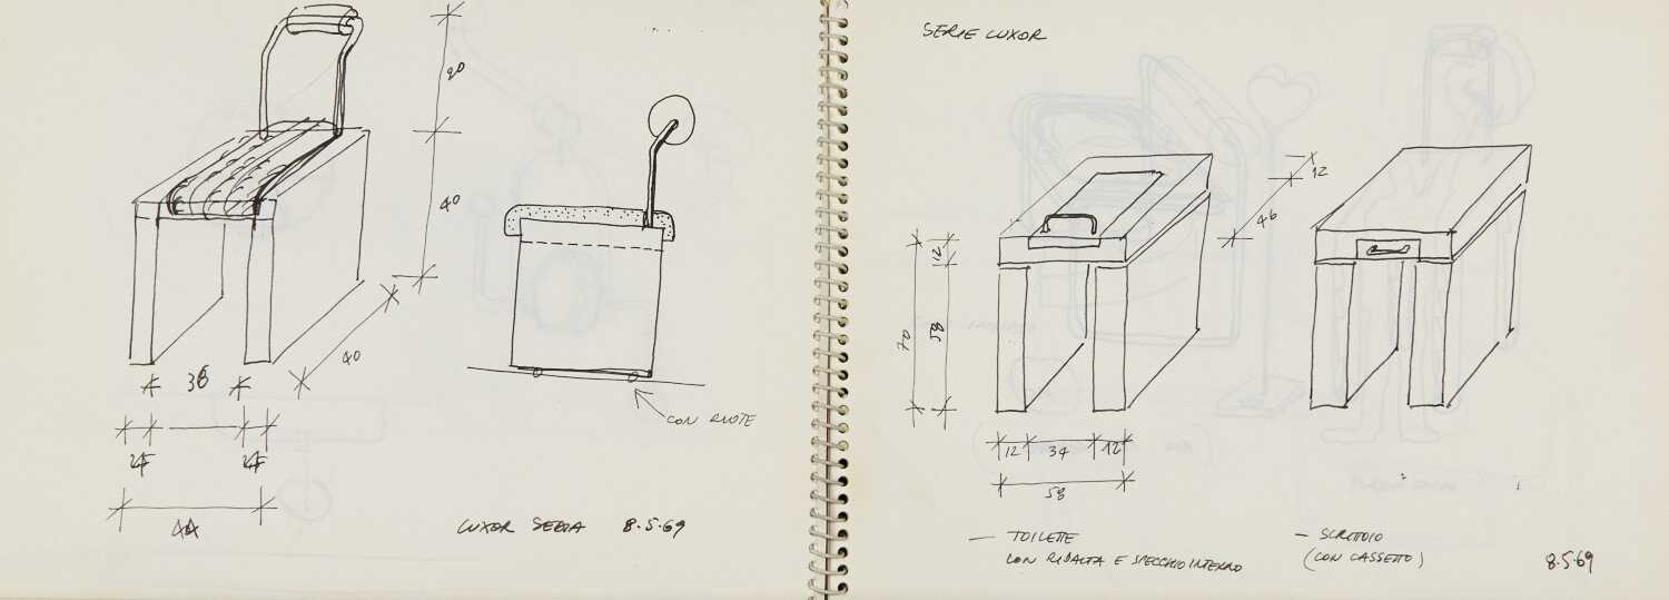 20
40
40
36
44
CON RUOTE
LUXOR SEDIA 8.5.69
SERIE LUXOR
12
46
12
58
70
12 34 12
58
— TOILETTE
CON RIBALTA E SPECCHIO INTERNO
— SCRITTOIO
(CON CASSETTO)
8.5.69